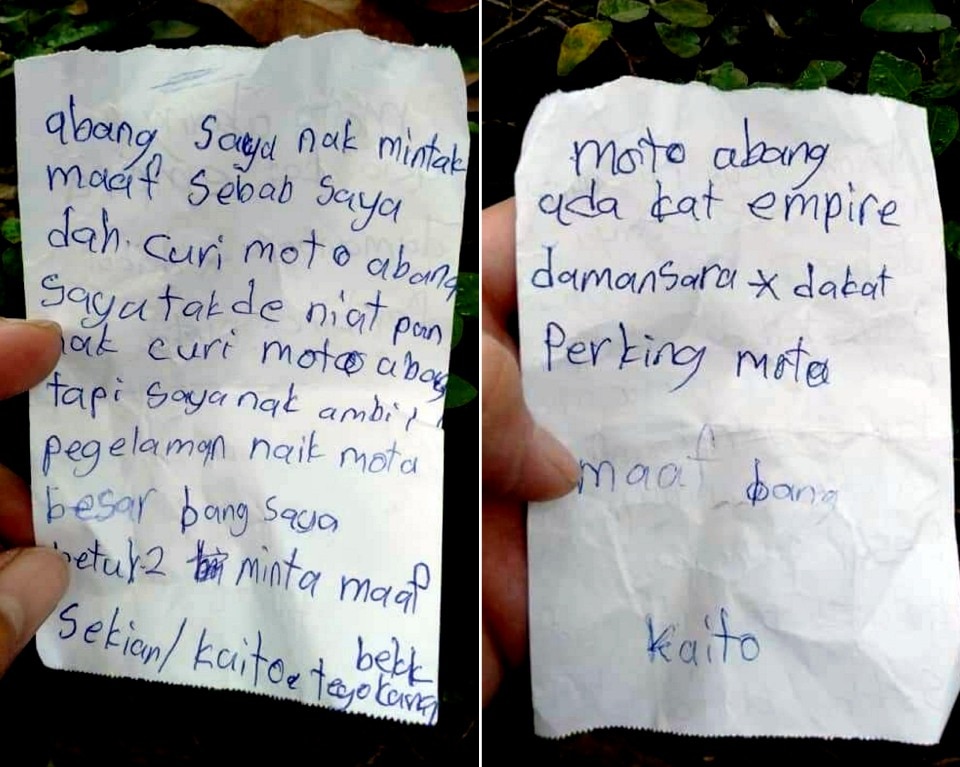 abang saya nak mintak
maaf sebab saya
dah. curi moto abang
saya takde niat pan
nak curi moto abag
tapi saya nak ambil
pegelaman naik mota
besar bang saya
betul-2 minta maaf
Sekian/kaito
bekk
moto abang
ada kat empire
damansara x dakat
Perking mota
maaf bang
kaito